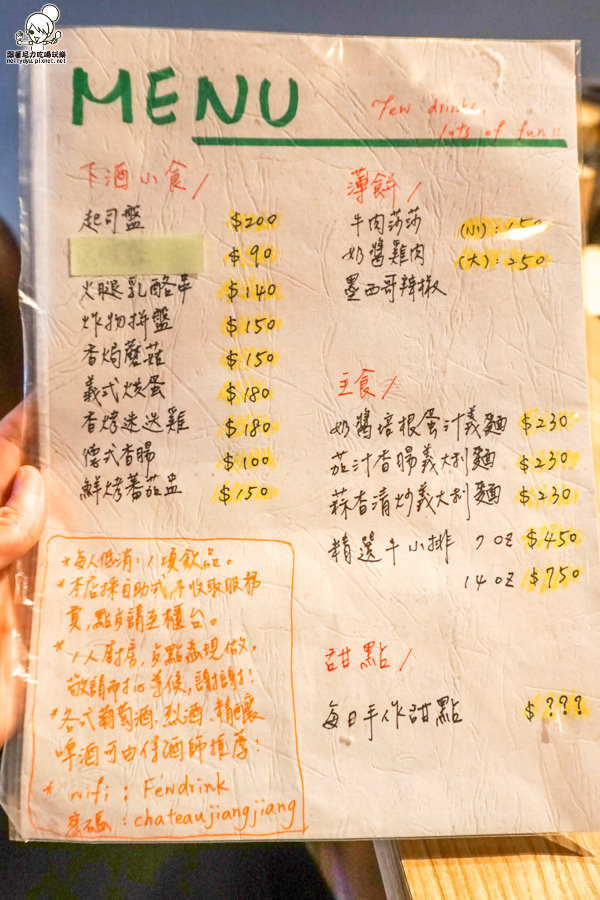 跟著尼力吃喝玩樂
nellydyu.pixnet.net
MENU
Few drink,
lots of fun!!
下酒小食/
起司盤 $200
$90
火腿乳酪串 $140
炸物拼盤 $150
香焗蘑菇 $150
義式烘蛋 $180
香烤迷迭雞 $180
德式香腸 $100
鮮烤蕃茄盅 $150
薄餅/
牛肉莎莎 (小):150
奶醬雞肉 (大):250
墨西哥辣椒
主食/
奶醬培根蛋汁義麵 $230
茄汁香腸義大利麵 $230
蒜香清炒義大利麵 $230
精選牛小排 7oz $450
14oz $750
甜點/
每日手作甜點 $???
*每人低消:1項飲品。
*本店採自助式,不收取服務
費,點餐請至櫃台。
*1人廚房,餐點為現做,
敬請耐心等候,謝謝!
*各式葡萄酒、烈酒、精釀
啤酒可由侍酒師推薦!
* wifi : Fendrink
密碼 : chateaujiangjiang